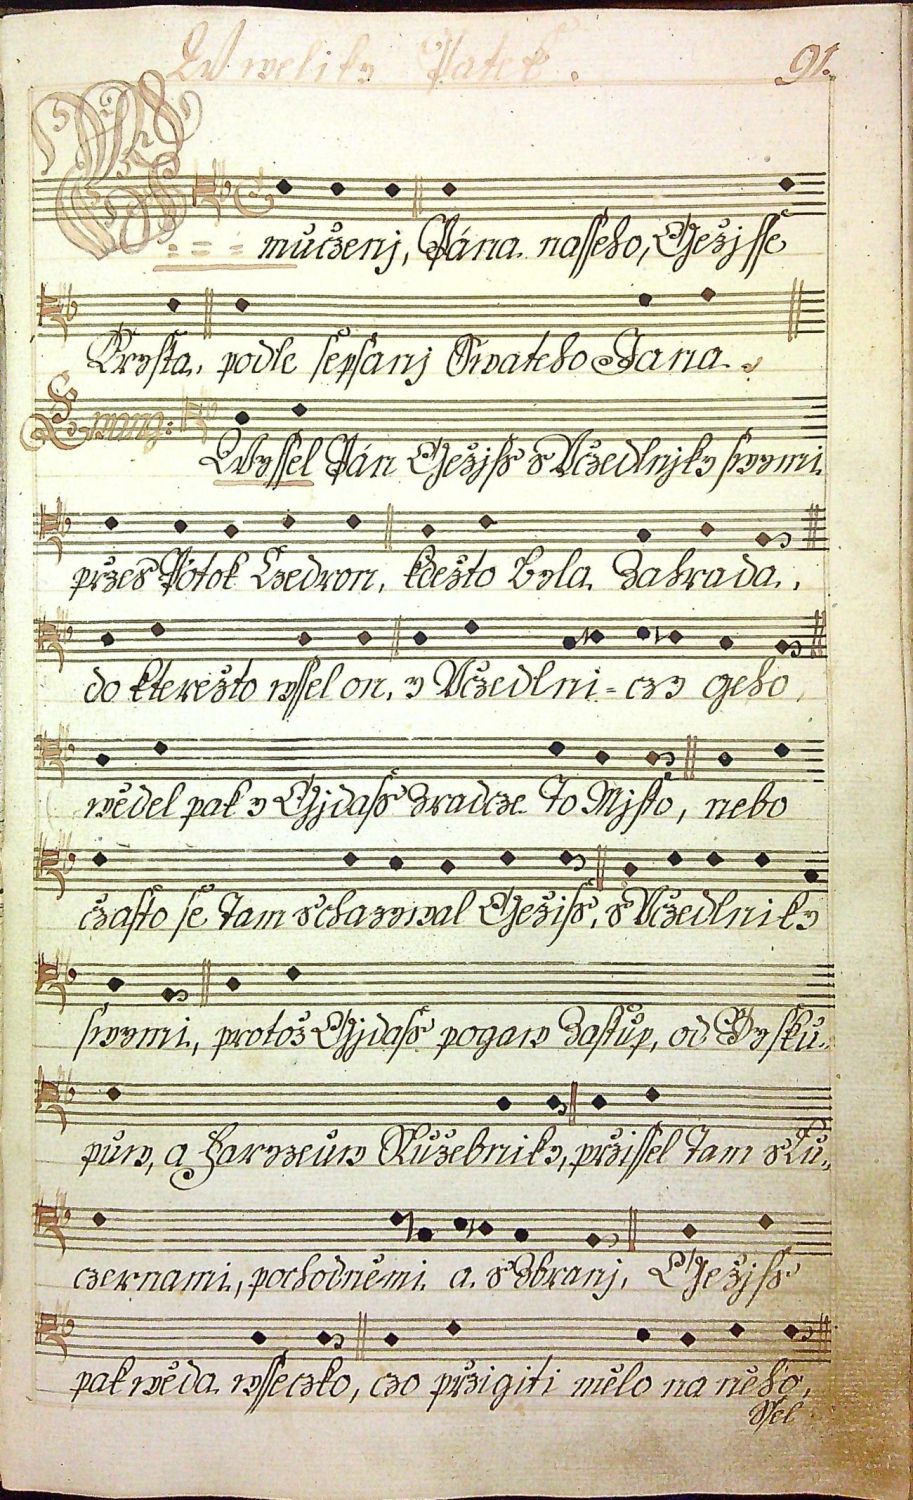 W weliky Patek.
91.
Umučzenj, Pána nasseho, Gežjsse
Krysta, podle sepsanj Swateho Jana.
Ewang:
Wyssel Pán Gežjss s Učzedlnjky swymi
přzes Potok Czedron, kdežto byla Zahrada,
do kterežto wssel on, y Učzedlni=czy geho,
wěděl pak y Gjdass Zradcze to Mjsto, nebo
čzasto se tam schazywal Gežiss, s Učzedlniky
swymi, protož Gjdass pogaw Zastup, od Bysku-
puw, a Faryzeuw Služebniky, přzissel tam s Lu-
czernami, pochodněmi a s Zbranj, Gežjss
pak wěda wsseczko, czo přzigiti mělo na něho,
Ssel